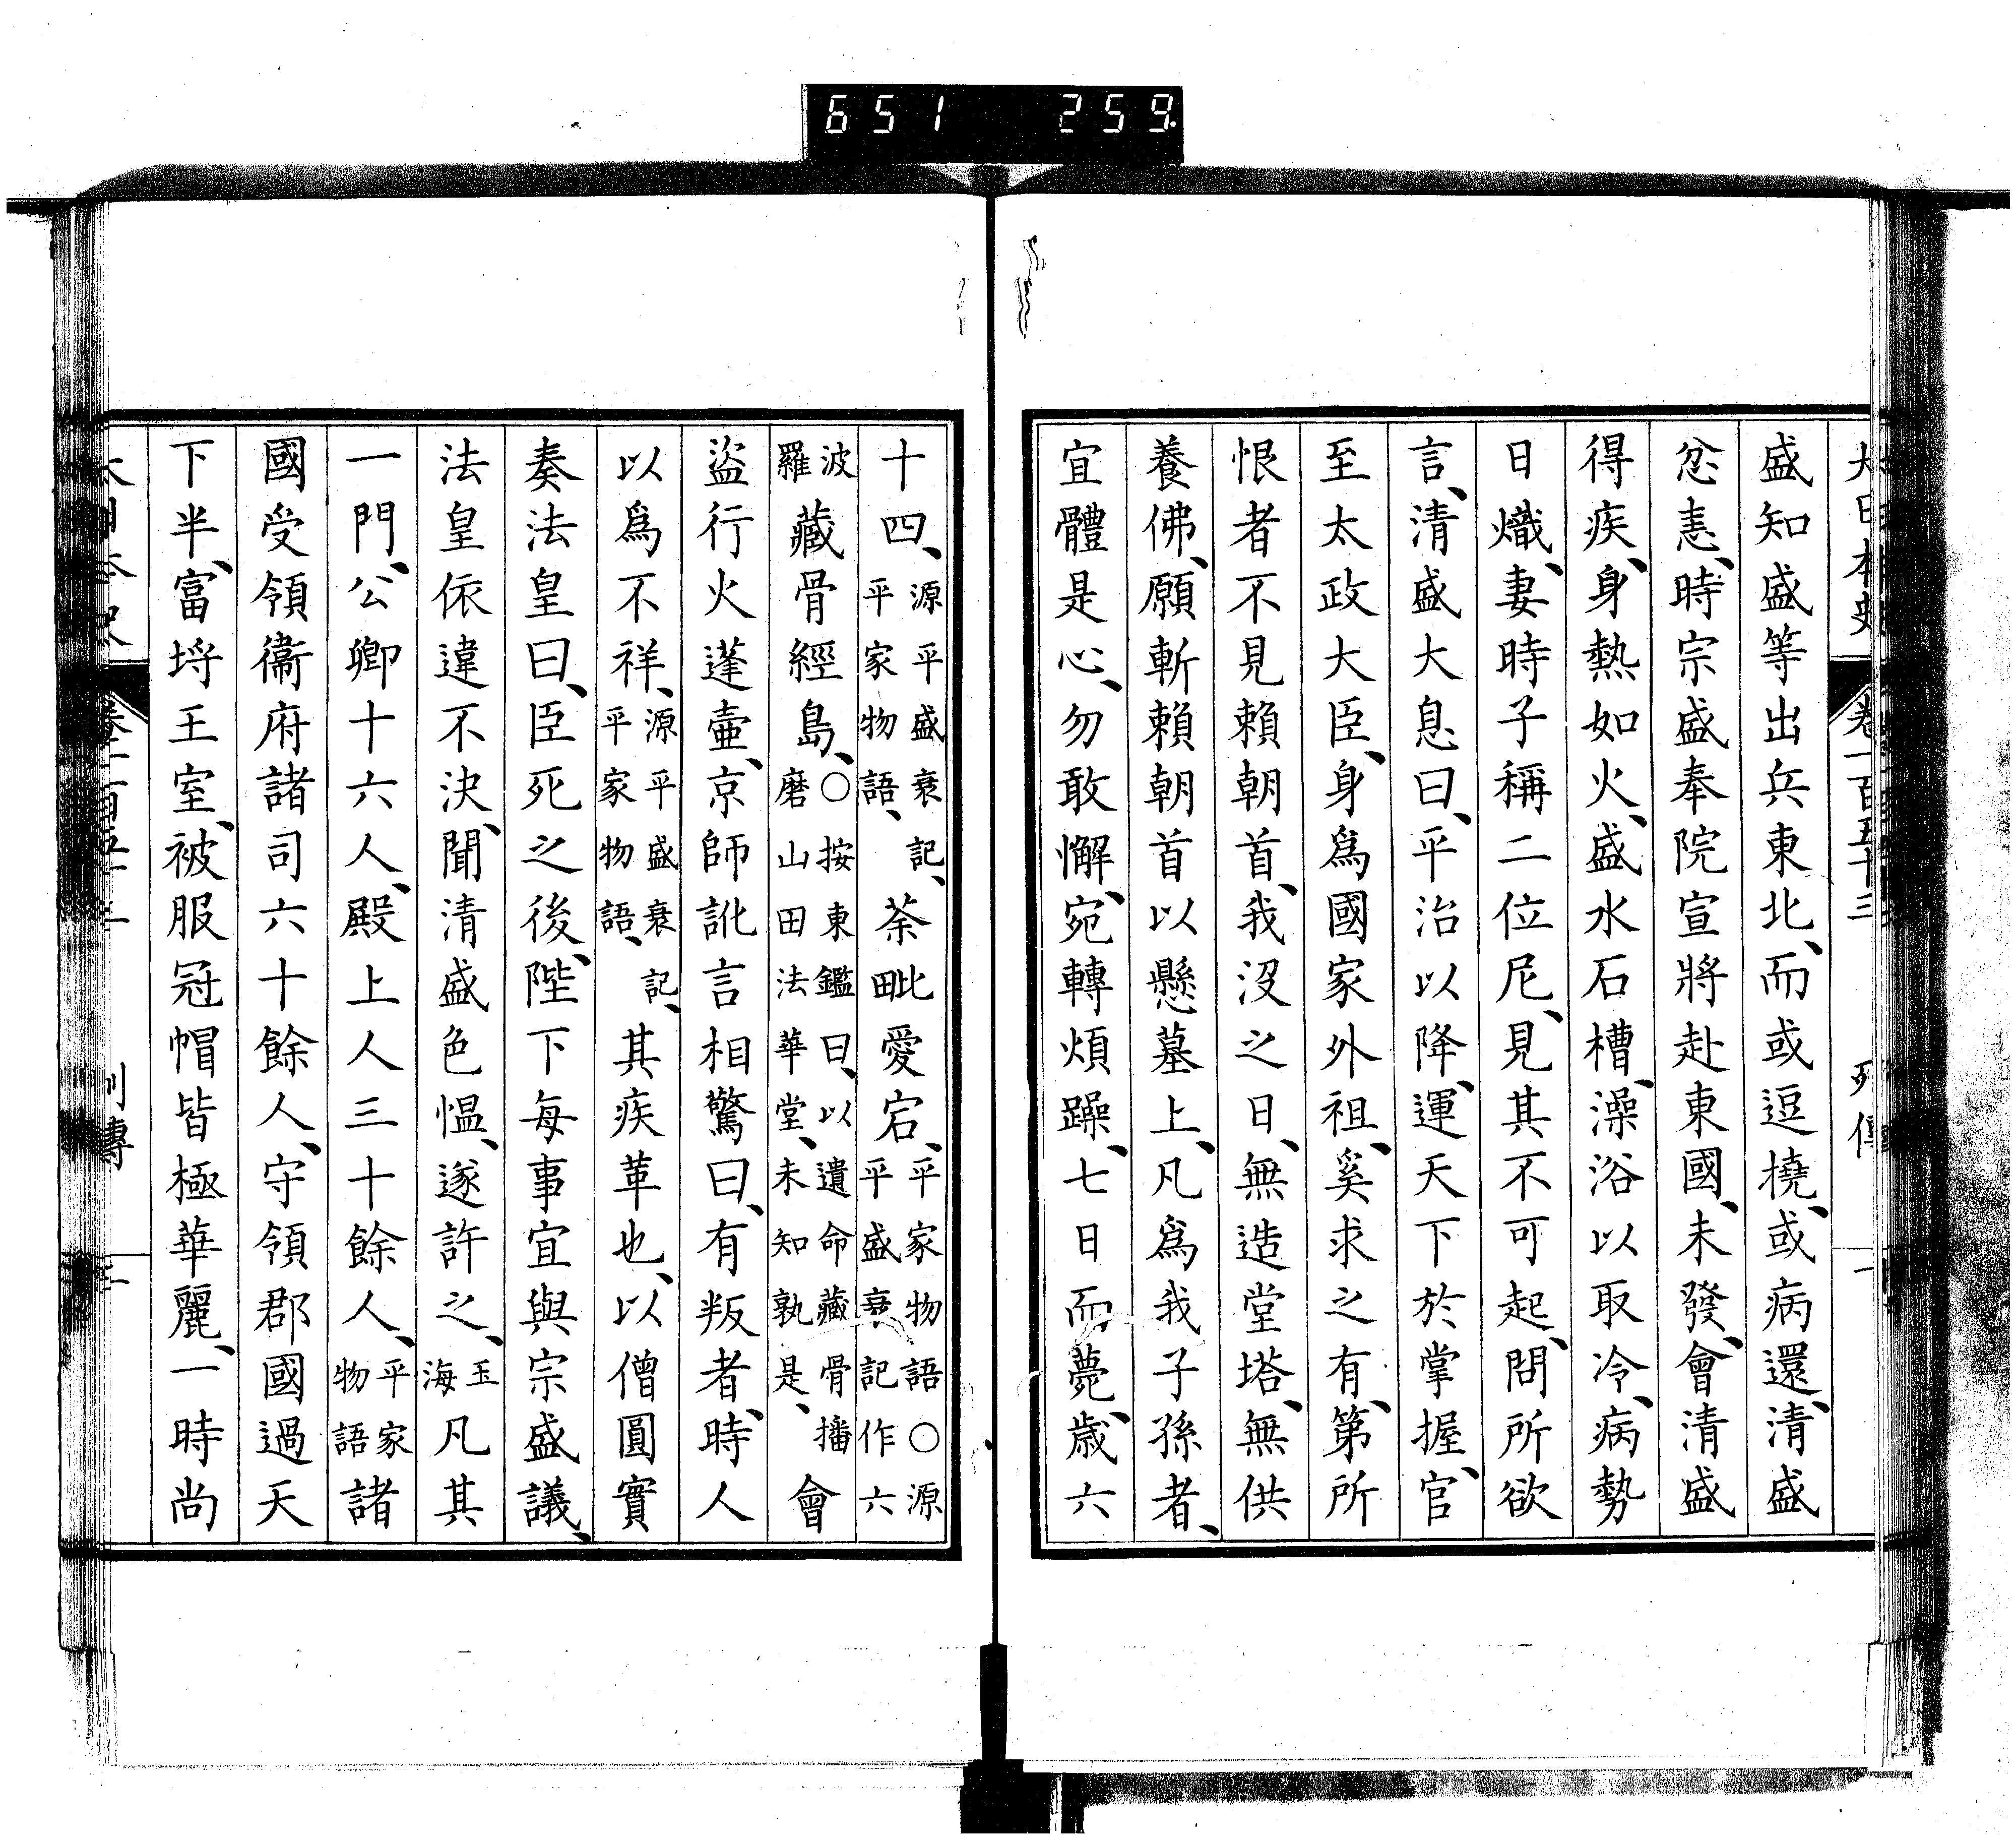 651 259
大日本史 卷一百五十三 列傳 一
盛知盛等出兵東北、而或逗撓、或病還、清盛
忿恚、時宗盛奉院宣將赴東國、未發、會清盛
得疾、身熱如火、盛水石槽、澡浴以取冷、病勢
日熾、妻時子稱二位尼、見其不可起、問所欲
言、清盛大息曰、平治以降、運天下於掌握、官
至太政大臣、身爲國家外祖、奚求之有、第所
恨者不見賴朝首、我沒之日、無造堂塔、無供
養佛、願斬賴朝首以懸墓上、凡爲我子孫者、
宜體是心、勿敢懈、宛轉煩躁、七日而薨、歲六
十四、源平盛衰記、平家物語、荼毗愛宕、平家物語○源平盛衰記作六
波羅藏骨經島、○按東鑑曰、以遺命藏骨播磨山田法華堂、未知孰是、會
盜行火蓬壷、京師訛言相驚曰、有叛者、時人
以爲不祥、源平盛衰記、平家物語、其疾革也、以僧圓實
奏法皇曰、臣死之後、陛下每事宜與宗盛議、
法皇依違不決、聞清盛色慍、遂許之、玉海凡其
一門、公卿十六人、殿上人三十餘人、平家物語諸
國受領衞府諸司六十餘人、守領郡國過天
下半、富埒王室、被服冠帽皆極華麗、一時尚
列傳